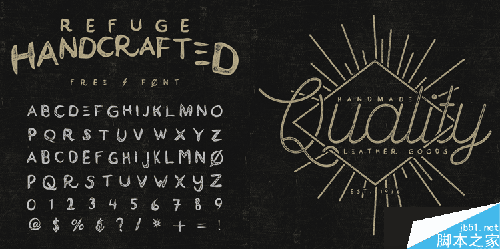 REFUGE
HANDCRAFTED
FREE FONT
ABCDEFGHIJKLMNO
PQRSTUVWXYZ
ABCDEFGHIJKLMNØ
PQRSTUVWXYZ
0123456789
@$%&?!*+=:
HANDMADE
Quality
LEATHER GOODS
EST
jb51.net
脚本之家